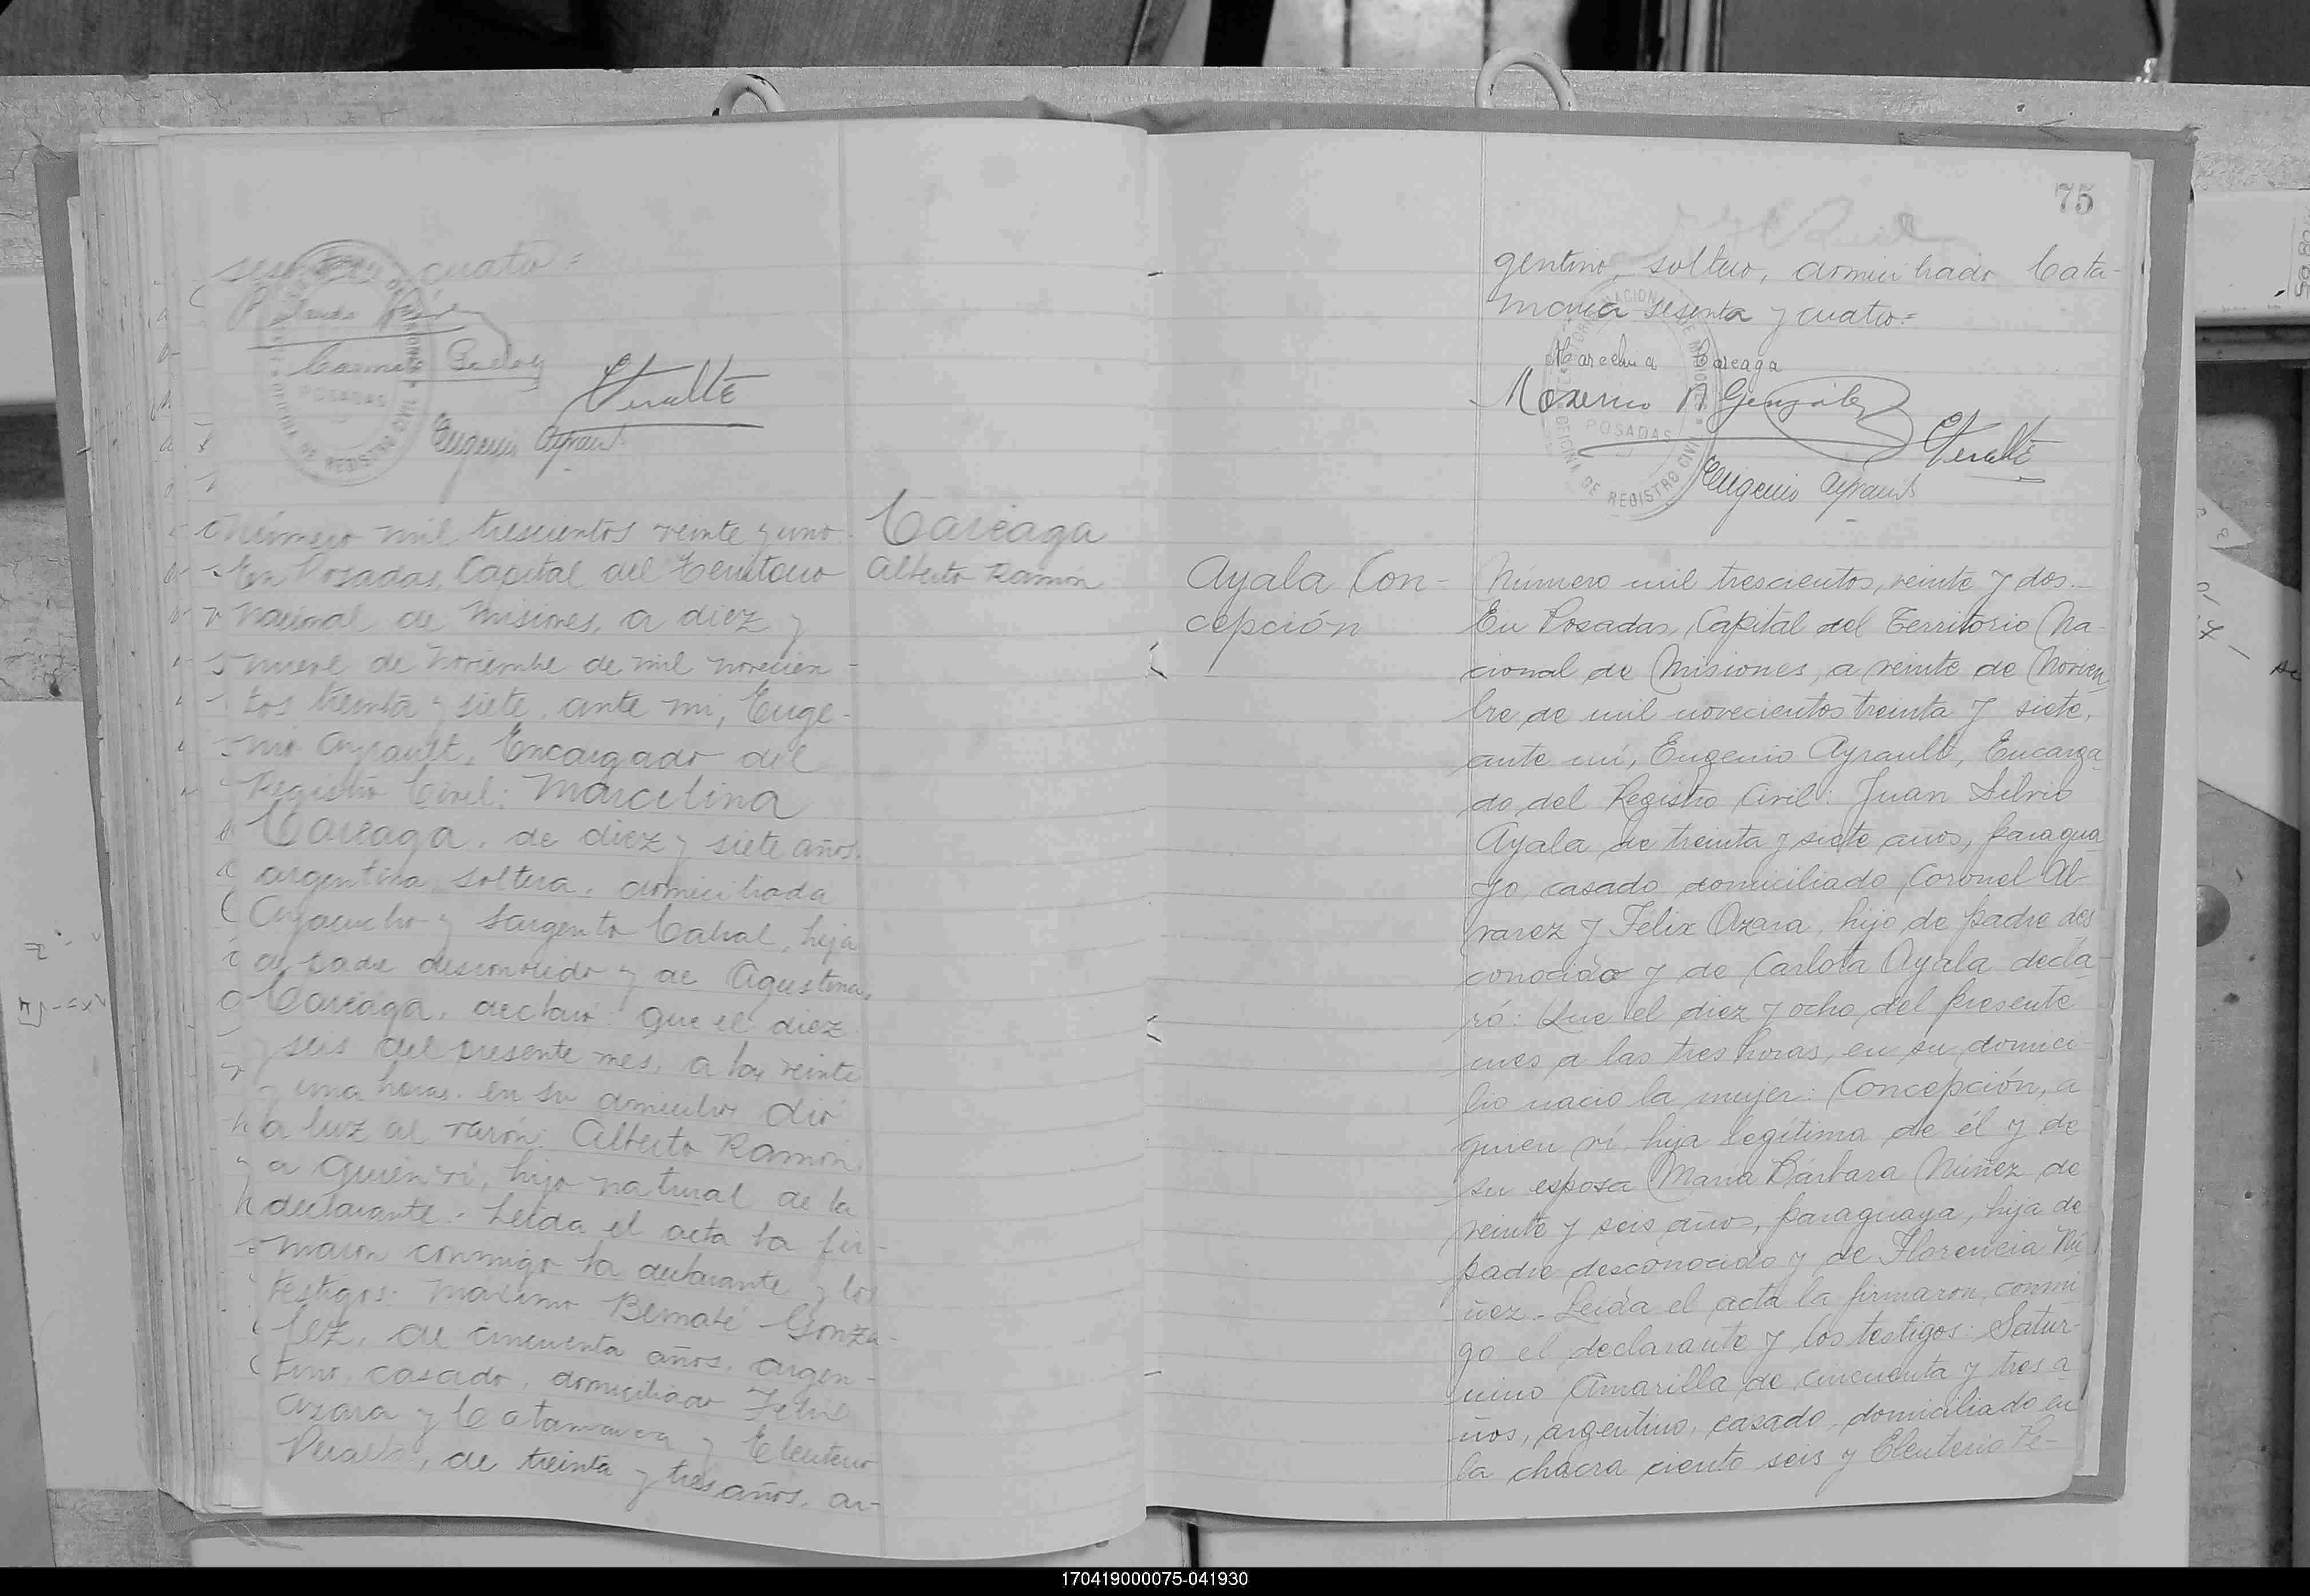 sesenta y cuatro=
Eugenio Ayrault
Careaga
Alberto Ramón
Número mil trescientos veinte y uno.
En Posadas, Capital del Territorio
Nacional de Misiones, a diez y
nueve de Noviembre de mil novecien-
tos treinta y siete, ante mi, Euge-
nio Ayrault, Encargado del
Registro Civil: Marcelina
Careaga, de diez y siete años,
argentina, soltera, domiciliada
Ayacucho y Sargento Cabral, hija
de padre desconocido y de Agustina
Careaga, declaró: Que el diez
y seis del presente mes, a las veinte
y una horas, en su domicilio dió
a luz al varón: Alberto Ramón,
a quien ví, hijo natural de la
declarante.- Leída el acta la fir-
maron conmigo la declarante y los
testigos: Maximo Bernabé Gonza-
lez, de cincuenta años, argen-
tino, casado, domiciliado Felix
Azara y Catamarca y Eleuterio
Peralta, de treinta y tres años, ar-
75
gentino, soltero, domiciliado Cata-
marca sesenta y cuatro=
Marcelina Careaga
Maximo B Gonzalez
Eugenio Ayrault
POSADAS
OFICINA DE REGISTRO CIVIL
Ayala Con-
cepción
Número mil trescientos, veinte y dos.
En Posadas, Capital del Territorio Na-
cional de Misiones, a veinte de Noviem-
bre de mil novecientos treinta y siete,
ante mí, Eugenio Ayrault, Encarga-
do del Registro Civil: Juan Silvio
Ayala de treinta y siete años, paragua
yo, casado, domiciliado Coronel Al-
varez y Felix Azara, hijo de padre des
conocido y de Carlota Ayala decla-
ró: Que el diez y ocho del presente
mes a las tres horas, en su domici-
lio nació la mujer: Concepción, a
quien ví, hija legítima de él y de
su esposa María Bárbara Núñez de
veinte y seis años, paraguaya, hija de
padre desconocido y de Florencia Nú
ñez.- Leída el acta la firmaron, conmi
go el declarante y los testigos: Satur-
nino Amarilla de cincuenta y tres a
ños, argentino, casado, domiciliado en
la chacra ciento seis y Eleuterio Pe-
170419000075-041930